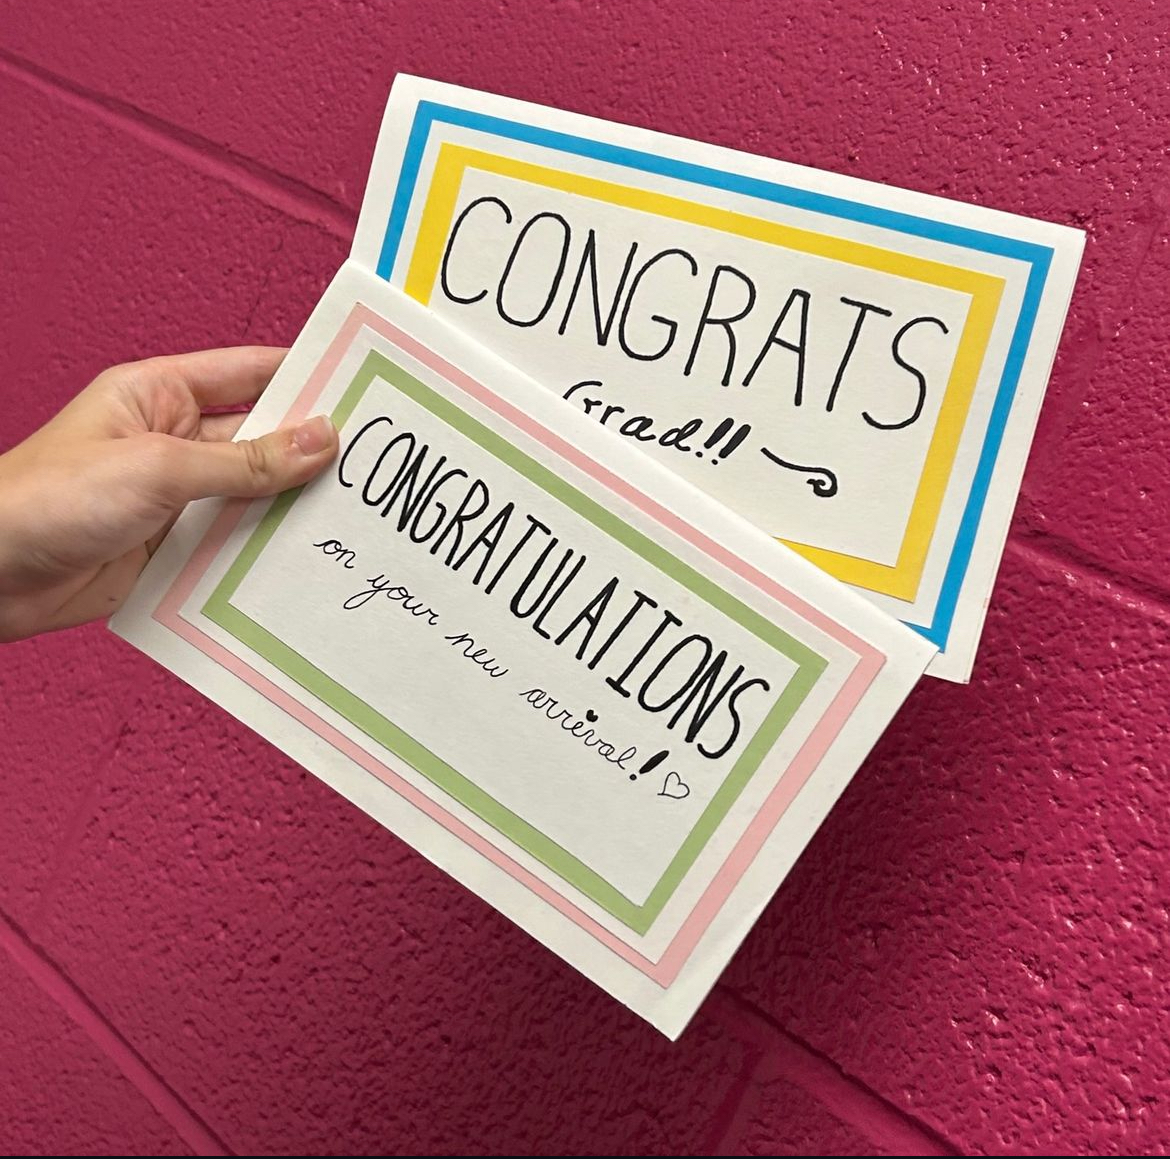 CONGRATS
Grad!!
CONGRATULATIONS
on your new arrival!